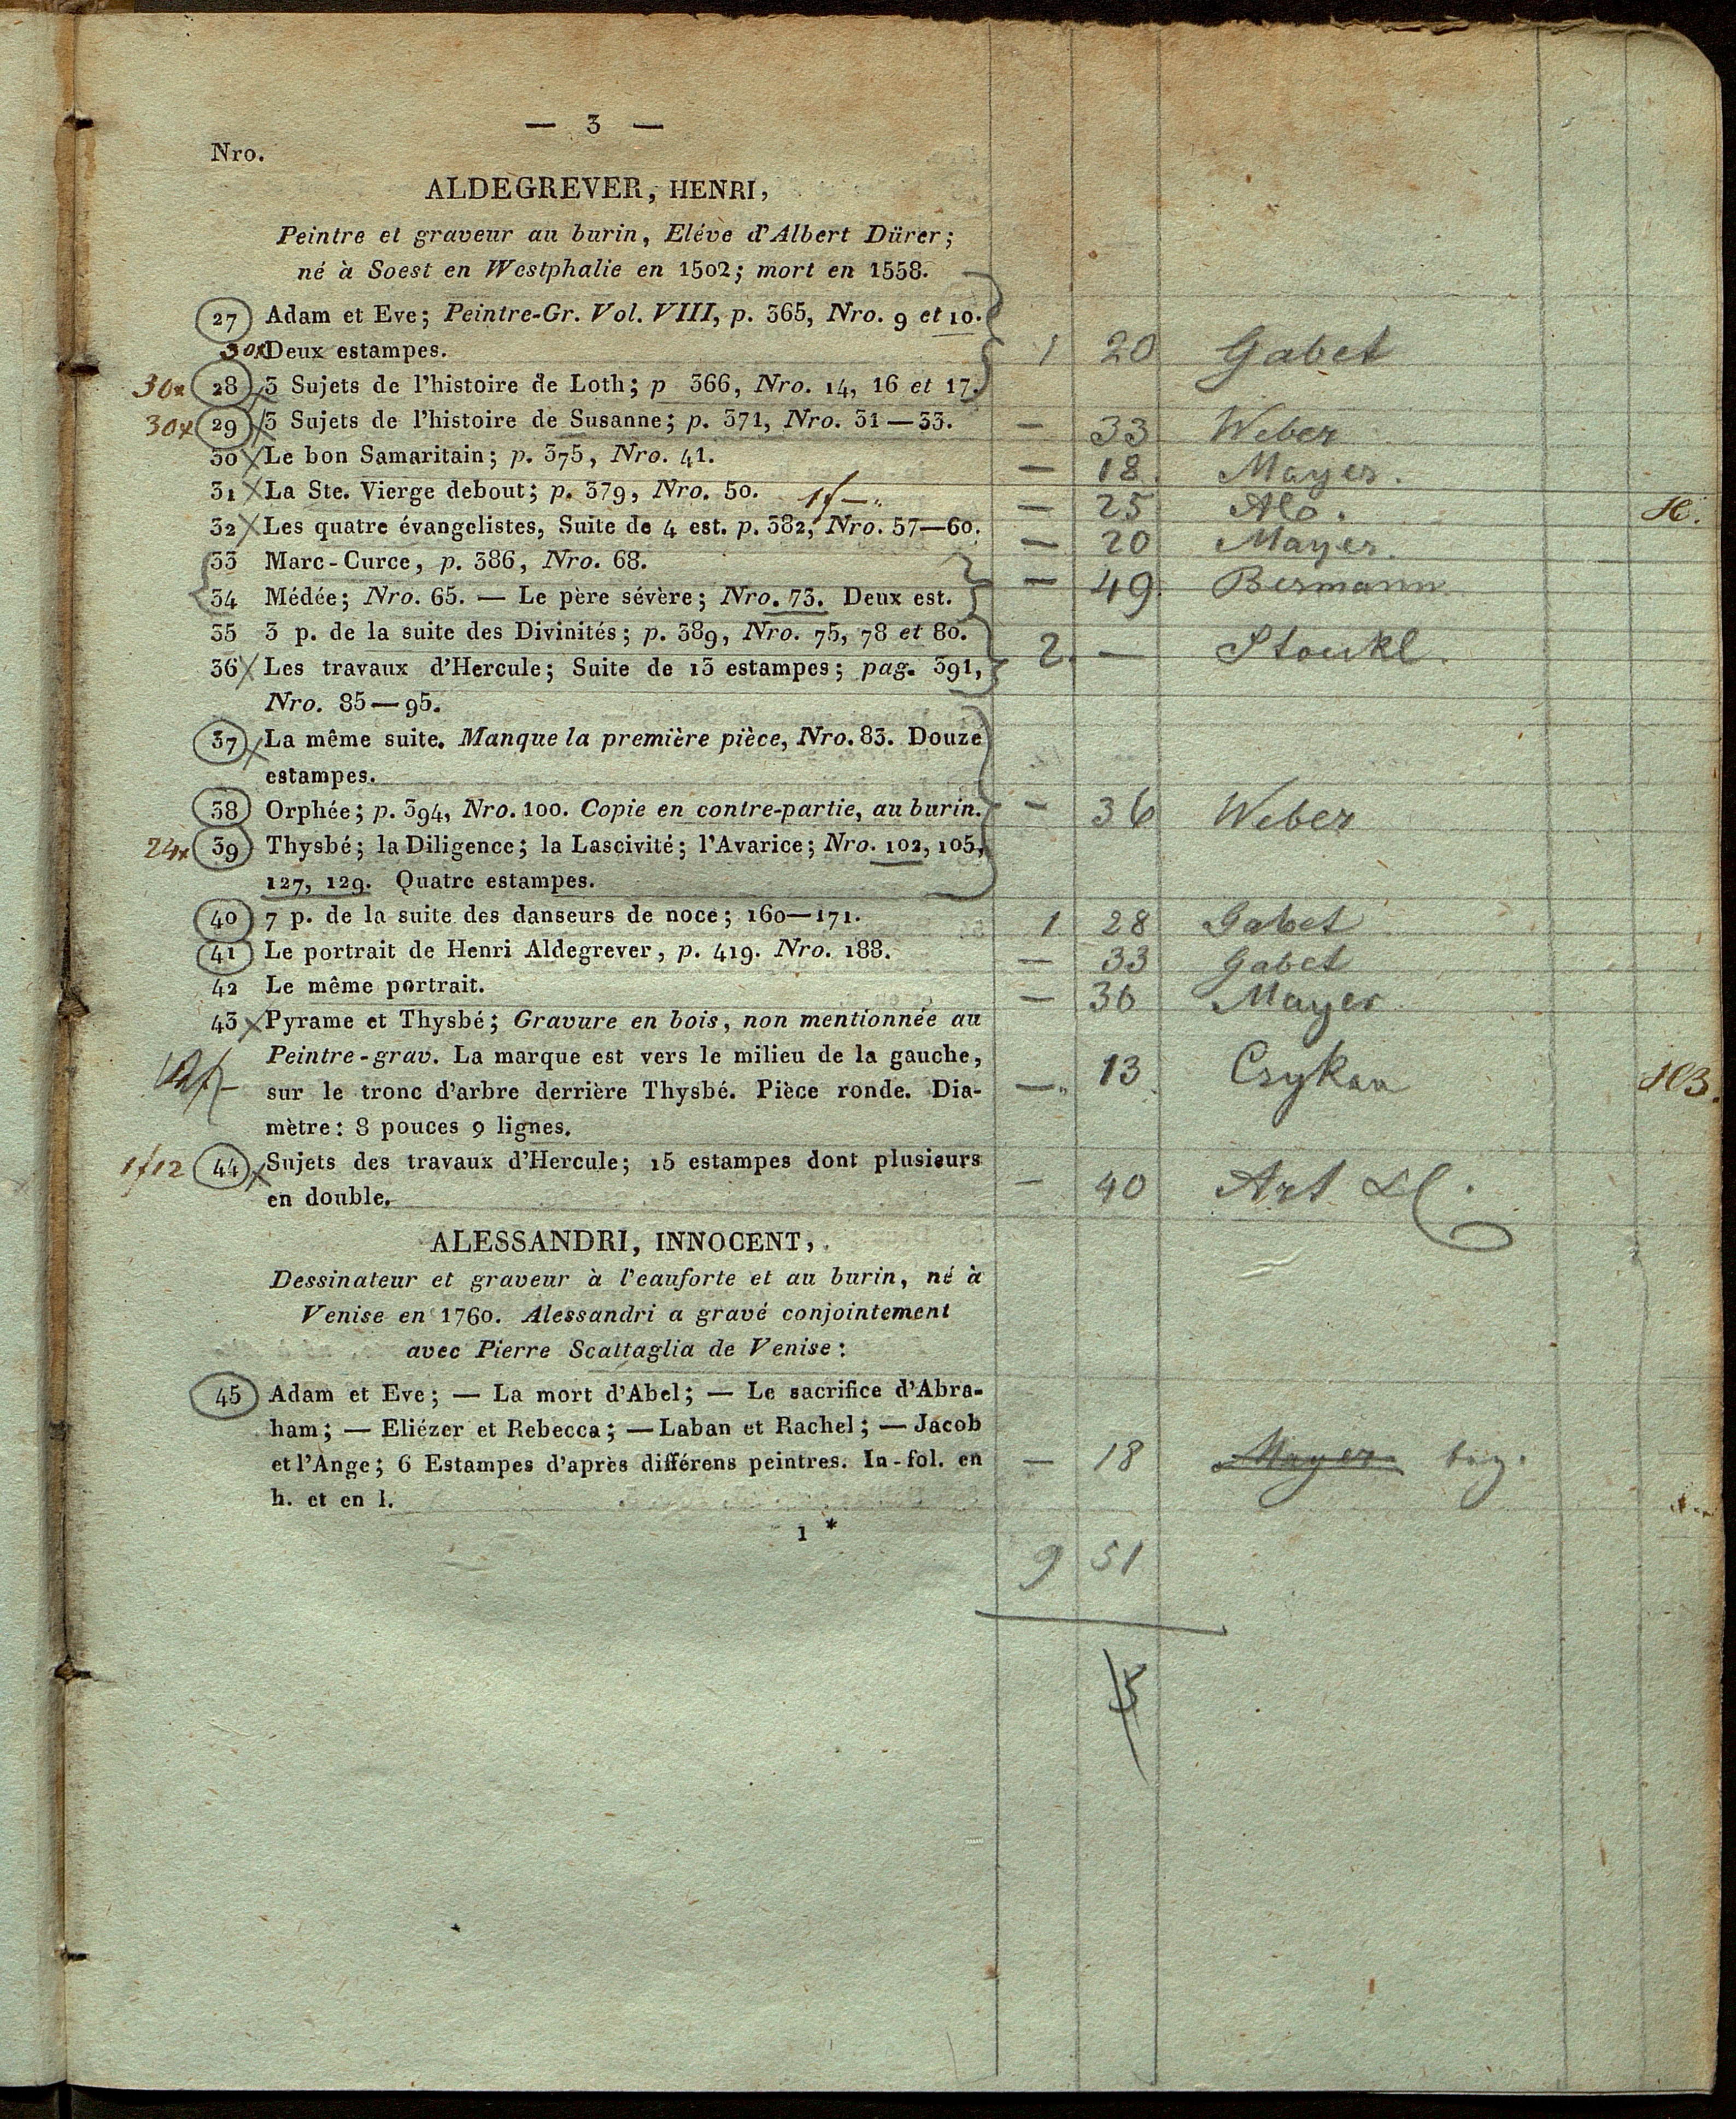 — 3 —
Nro.
ALDEGREVER, HENRI,
Peintre et graveur au burin, Elève d'Albert Dürer;
né à Soest en Westphalie en 1502; mort en 1558.
27 Adam et Eve; Peintre-Gr. Vol. VIII, p. 365, Nro. 9 et 10.
30x Deux estampes. 1 20 Gabet
30x 28 3 Sujets de l'histoire de Loth; p 366, Nro. 14, 16 et 17.
30x 29 3 Sujets de l'histoire de Susanne; p. 371, Nro. 31—33. — 33 Weber
30 Le bon Samaritain; p. 375, Nro. 41. — 18 Mayer.
31 La Ste. Vierge debout; p. 379, Nro. 50. 1f — — 25 Alb.
32 Les quatre évangelistes, Suite de 4 est. p. 382, Nro. 57—60. — 20 Mayer.
33 Marc-Curce, p. 386, Nro. 68.
34 Médée; Nro. 65. — Le père sévère; Nro. 73. Deux est. — 49 Bermann
35 3 p. de la suite des Divinités; p. 389, Nro. 75, 78 et 80.
36 Les travaux d'Hercule; Suite de 13 estampes; pag. 391, 2. — Stoukl.
Nro. 83—95.
37 La même suite. Manque la première pièce, Nro. 83. Douze
estampes.
38 Orphée; p. 394, Nro. 100. Copie en contre-partie, au burin. — 36 Weber
24x 39 Thysbé; la Diligence; la Lascivité; l'Avarice; Nro. 102, 105,
127, 129. Quatre estampes.
40 7 p. de la suite des danseurs de noce; 160—171. 1 28 Gabet
41 Le portrait de Henri Aldegrever, p. 419. Nro. 188. — 33 Gabet
42 Le même portrait. — 36 Mayer
43 Pyrame et Thysbé; Gravure en bois, non mentionnée au
Peintre-grav. La marque est vers le milieu de la gauche,
sur le tronc d'arbre derrière Thysbé. Pièce ronde. Dia- — 13
mètre: 8 pouces 9 lignes.
1f12 44 Sujets des travaux d'Hercule; 15 estampes dont plusieurs
en double. — 40 Art
ALESSANDRI, INNOCENT,
Dessinateur et graveur à l'eauforte et au burin, né à
Venise en 1760. Alessandri a gravé conjointement
avec Pierre Scattaglia de Venise:
45 Adam et Eve; — La mort d'Abel; — Le sacrifice d'Abra-
ham; — Eliézer et Rebecca; — Laban et Rachel; — Jacob
et l'Ange; 6 Estampes d'après différens peintres. In-fol. en — 18 Mayer
h. et en l.
1 *
9 51